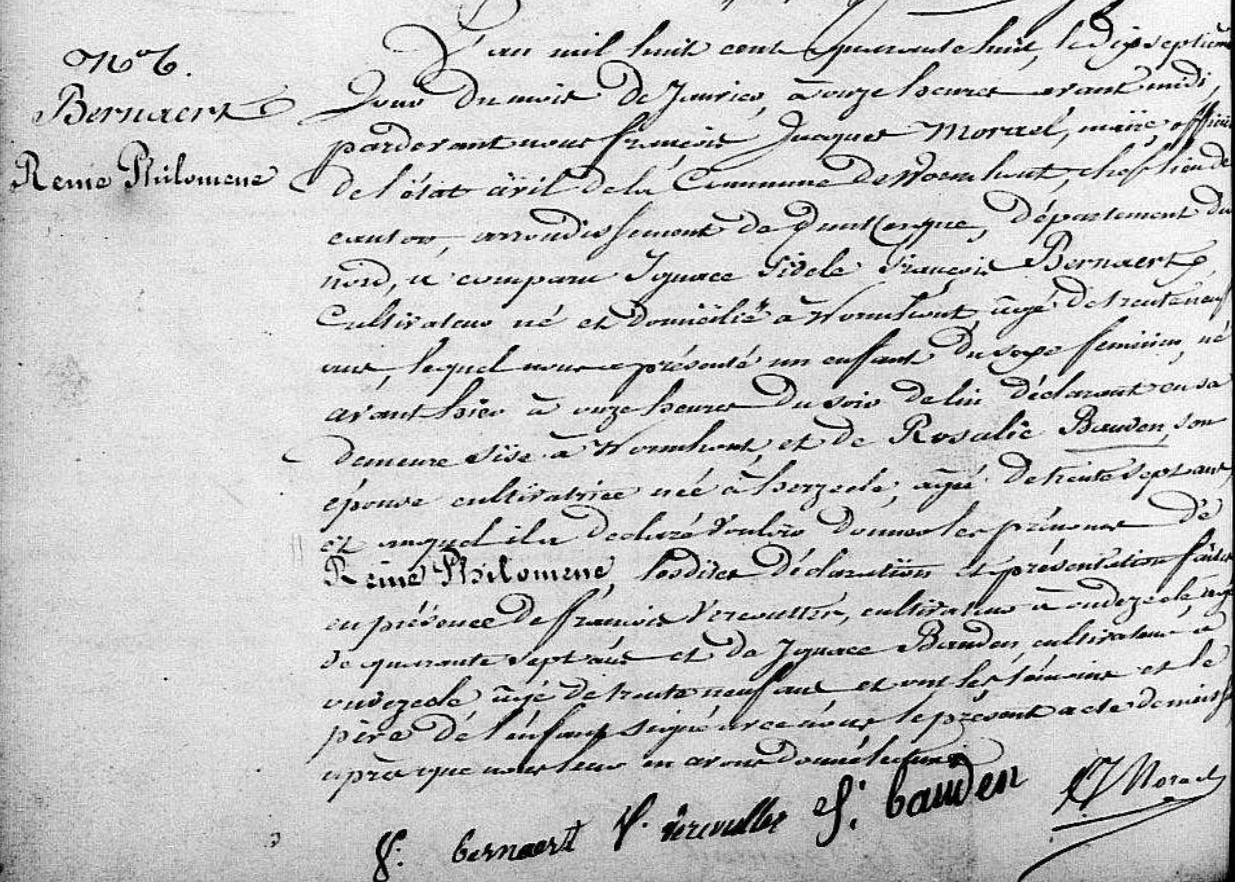 N° 6.
Bernaert
Reine Philomene
L'an mil huit cent quarante huit, le dix septième
Jour du mois de Janvier, à onze heures avant midi,
pardevant nous françois Jacques Morael, maire, officier
de l'état civil de la Commune de Wormhout, chef lieu de
canton, arrondissement de Dunkerque, Département du
nord, a comparu Ignace Fidele François Bernaert,
Cultivateur né et domicilié à Wormhout, agé de trente neuf
ans, lequel nous a présenté un enfant du sexe feminin, né
avant hier à onze heures du soir de lui déclarant en sa
demeure sise à Wormhout, et de Rosalie Bauden, son
épouse cultivatrice née à herzeele, agée de trente sept ans,
et auquel il a declaré vouloir donner les prénoms de
Reine Philomene, lesdites déclaration et présentation faites
en présence de françois Vercoutter, cultivateur à oudezeele, agé
de quarante sept ans et de Ignace Bauden cultivateur à
oudezeele agé de trente neuf ans et ont les témoins et le
père de l'enfant signé avec nous le présent acte de naissce
après que nous leur en avons donné lecture
f. bernaert f. vercoutter f. bauden Morael